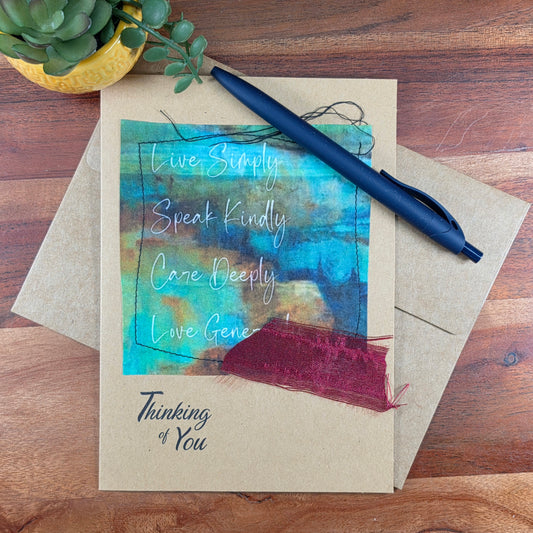 Live Simply
Speak Kindly
Care Deeply
Love
Thinking
of
You